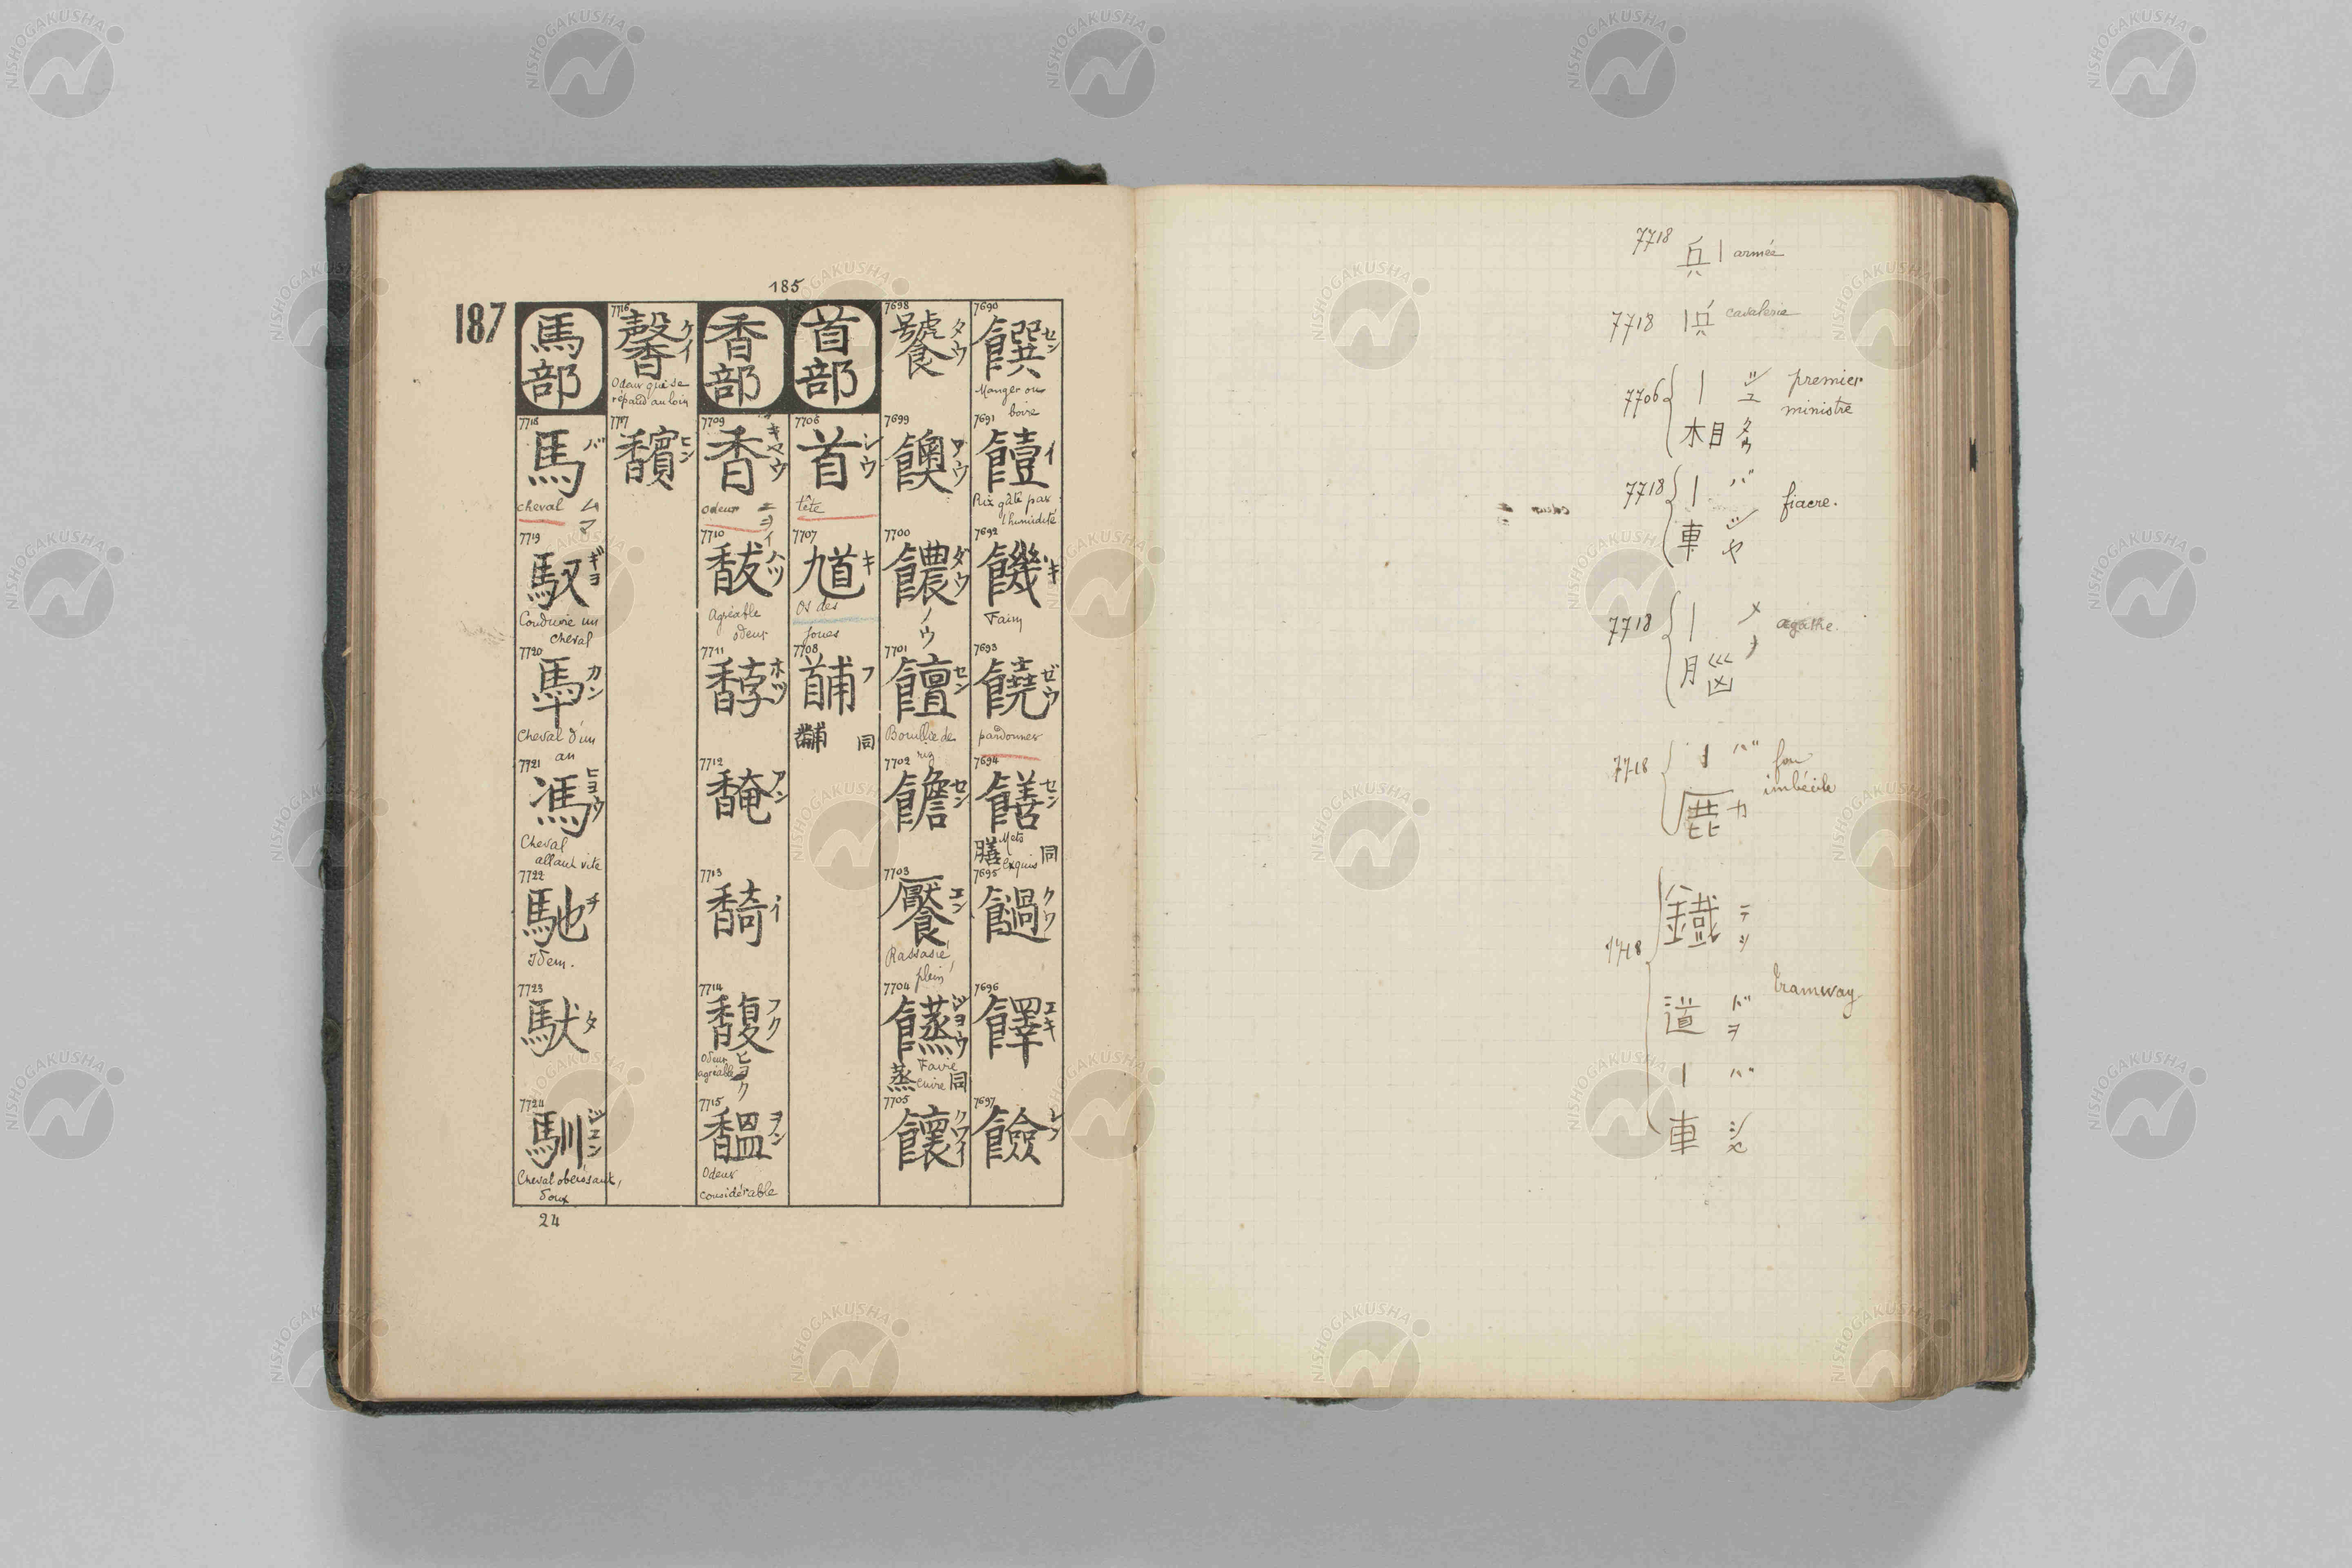 185
187
7690
饌 セン
Manger ou
boire
7691
饐 イ
Riz gâté par
l'humidité
7692
饑 キ
Faim
7693
饒 ゼウ
pardonner
7694
饍 セン
Mets
exquis
膳 同
7695
クワ
7696
エキ
7697
レン
7698
饕 タウ
7699
アウ
7700
ダウ
ノウ
7701
饘 セン
Bouillie de
riz
7702
セン
7703
饜 エン
Rassasié,
plein
7704
ジヨウ
Faire
cuire
蒸 同
7705
クワイ
首部
7706
首 シウ
tête
7707
馗 キ
Os des
joues
7708
フ
同
香部
7709
香 キヤウ
odeur
ニヲイ
7710
馛 ハツ
Agréable
odeur
7711
馞 ホツ
7712
馣 アン
7713
馡 イ
7714
馥 フク
ヒヨク
Odeur
agréable
7715
馧 ヲン
Odeur
considérable
7716
馨 ケイ
Odeur qui se
répand au loin
7717
馪 ヒン
馬部
7718
馬 バ
cheval
ムマ
7719
馭 ギヨ
Conduire un
cheval
7720
カン
Cheval d'un
an
7721
馮 ヒヨウ
Cheval
allant vite
7722
馳 チ
Idem.
7723
馱 タ
7724
馴 ジユン
Cheval obéissant,
doux
24
7718 兵| armée
7718 |兵 cavalerie
7706 | シユ premier
木目 ministre
7718 | バ fiacre.
車 シヤ
7718 | メ agathe.
7718 | バ fou
鹿 カ imbécile
7718
鐵 テツ
道 ドヲ tramway
| バ
車 シヤ
NISHOGAKUSHA